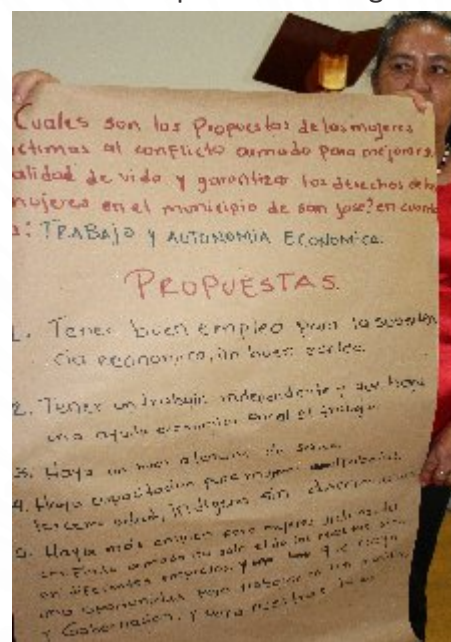 Cuales son las Propuestas de las mujeres
ctimas al conflicto armado para mejorar s
alidad de vida y garantizar los derechos de las
mujeres en el municipio de san jose? en cuanto
a: TRABAJO Y AUTONOMIA ECONOMICA.
PROPUESTAS
1. Tener buen empleo para la subsisten
cia economica, un buen
2. Tener un trabajo independiente y que haya
una ayuda economica en el trabajo
3. Haya un buen de
4. Haya capacitacion para mujeres
tercera edad, indigena sin
5. Haya más empleo para mujeres victimas del
conflicto armado no solo el de
en diferentes empresas, y que haya
una oportunidad para trabajar en
y Gobernacion, y